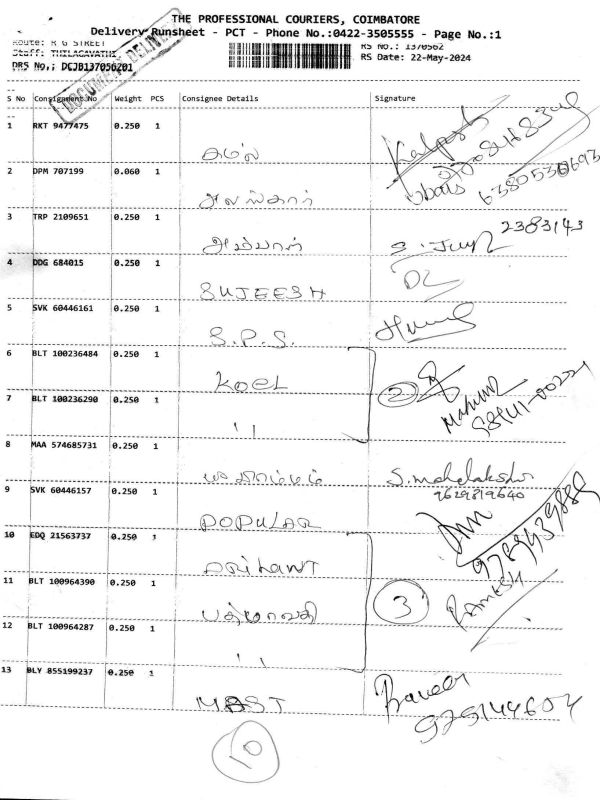 THE PROFESSIONAL COURIERS, COIMBATORE
Delivery Runsheet - PCT - Phone No.:0422-3505555 - Page No.:1
Route: R G STREET
RS No.: 1370562
Staff: THILAGAVATHI,
RS Date: 22-May-2024
DRS No.: DCJB137056201
DOCUMENT DELIVER
S No Consignment No Weight PCS Consignee Details Signature
1 RKT 9477475 0.250 1
2 DPM 707199 0.060 1
3 TRP 2109651 0.250 1 2383143
4 DDG 684015 0.250 1 SUJEESH
5 SVK 60446161 0.250 1 S.P.S.
6 BLT 100236484 0.250 1 KOEL
2
7 BLT 100236290 0.250 1 ''
8 MAA 574685731 0.250 1 S. mahalakshmi
9629819640
9 SVK 60446157 0.250 1 POPULAR
10 EDQ 21563737 0.250 1 ARIHANT
3
RAMESH
11 BLT 100964390 0.250 1 பத்மாவதி
12 BLT 100964287 0.250 1 ''
13 BLY 855199237 0.250 1 MAST
10